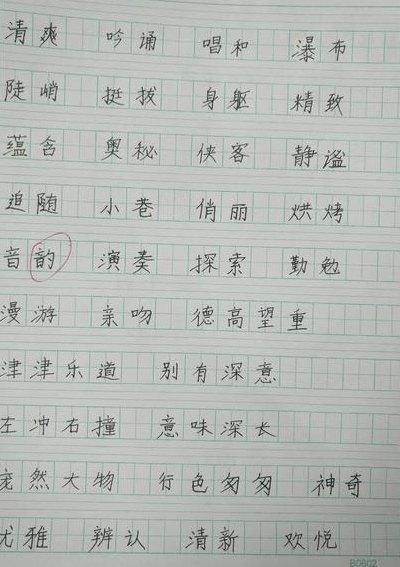 清爽 吟诵 唱和 瀑布
陡峭 挺拔 身躯 精致
蕴含 奥秘 侠客 静谧
追随 小巷 俏丽 烘烤
音韵 演奏 探索 勤勉
漫游 亲吻 德高望重
津津乐道 别有深意
左冲右撞 意味深长
庞然大物 行色匆匆 神奇
优雅 辨认 清新 欢悦
B0602